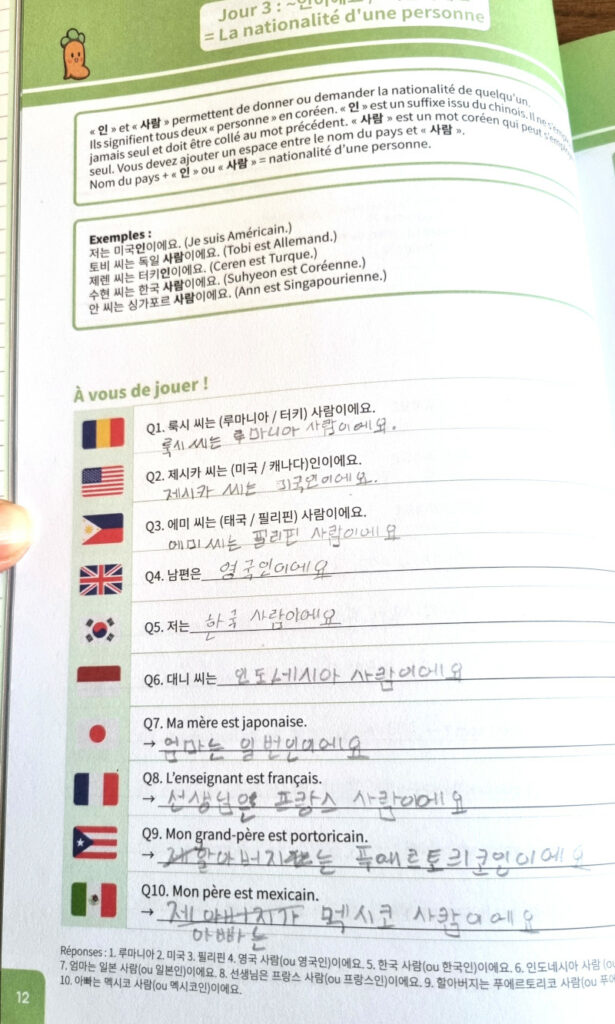 Jour 3 : ~인이에요 /
= La nationalité d'une personne
« 인 » et « 사람 » permettent de donner ou demander la nationalité de quelqu'un.
Ils signifient tous deux « personne » en coréen. « 인 » est un suffixe issu du chinois. Il ne s'emploie
jamais seul et doit être collé au mot précédent. « 사람 » est un mot coréen qui peut s'employer
seul. Vous devez ajouter un espace entre le nom du pays et « 사람 ».
Nom du pays + « 인 » ou « 사람 » = nationalité d'une personne.
Exemples :
저는 미국인이에요. (Je suis Américain.)
토비 씨는 독일 사람이에요. (Tobi est Allemand.)
제렌 씨는 터키인이에요. (Ceren est Turque.)
수현 씨는 한국 사람이에요. (Suhyeon est Coréenne.)
안 씨는 싱가포르 사람이에요. (Ann est Singapourienne.)
À vous de jouer !
Q1. 룩시 씨는 (루마니아 / 터키) 사람이에요.
룩시 씨는 루마니아 사람이에요.
Q2. 제시카 씨는 (미국 / 캐나다)인이에요.
제시카 씨는 미국인이에요.
Q3. 에미 씨는 (태국 / 필리핀) 사람이에요.
에미 씨는 필리핀 사람이에요
Q4. 남편은 영국인이에요
Q5. 저는 한국 사람이에요
Q6. 대니 씨는 인도네시아 사람이에요
Q7. Ma mère est japonaise.
→ 엄마는 일번인이에요
Q8. L'enseignant est français.
→ 선생님은 프랑스 사람이에요
Q9. Mon grand-père est portoricain.
→ 할아버지는 푸에르토리코인이에요
Q10. Mon père est mexicain.
→ 제 아버지가 멕시코 사람이에요
아빠는
Réponses : 1. 루마니아 2. 미국 3. 필리핀 4. 영국 사람(ou 영국인)이에요. 5. 한국 사람(ou 한국인)이에요. 6. 인도네시아 사람 (ou
7. 엄마는 일본 사람(ou 일본인)이에요. 8. 선생님은 프랑스 사람(ou 프랑스인)이에요. 9. 할아버지는 푸에르토리코 사람(ou 푸에
10. 아빠는 멕시코 사람(ou 멕시코인)이에요.
12